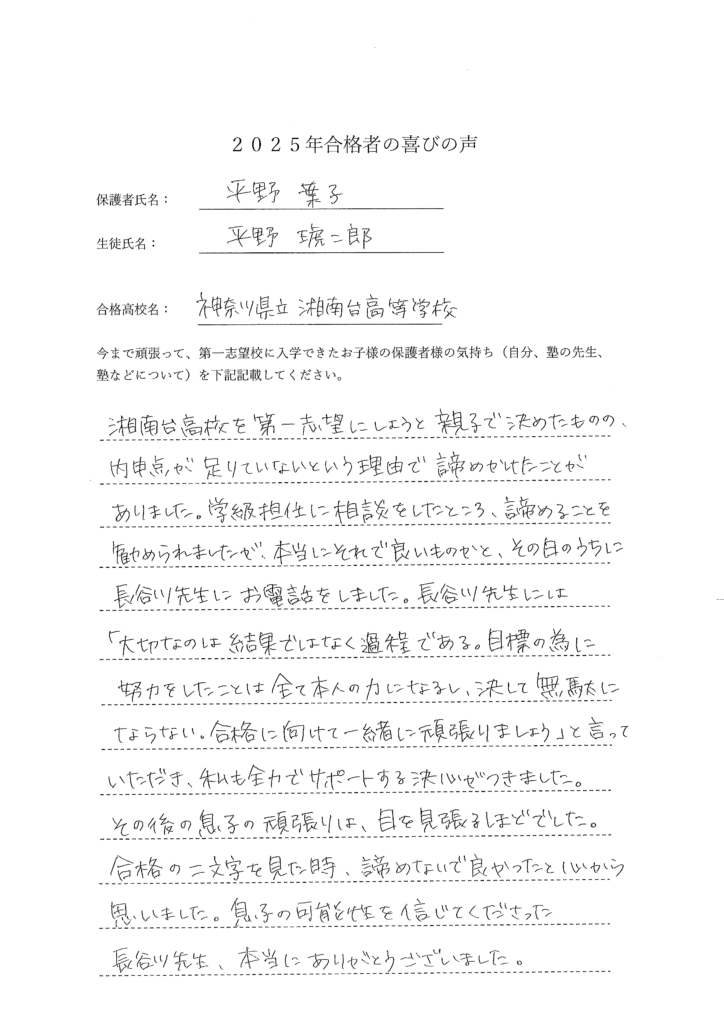 2025年合格者の喜びの声
保護者氏名： 平野 葉子
生徒氏名： 平野 琥二郎
合格高校名： 神奈川県立 湘南台高等学校
今まで頑張って、第一志望校に入学できたお子様の保護者様の気持ち（自分、塾の先生、
塾などについて）を下記記載してください。
湘南台高校を第一志望にしようと親子で決めたものの、
内申点が足りていないという理由で諦めかけたことが
ありました。学級担任に相談をしたところ、諦めることを
勧められましたが、本当にそれで良いものかと、その日のうちに
長谷川先生にお電話をしました。長谷川先生には
「大切なのは結果ではなく過程である。目標の為に
努力をしたことは全て本人の力になるし、決して無駄に
ならない。合格に向けて一緒に頑張りましょう」と言って
いただき、私も全力でサポートする決心がつきました。
その後の息子の頑張りは、目を見張るほどでした。
合格の二文字を見た時、諦めないで良かったと心から
思いました。息子の可能性を信じてくださった
長谷川先生、本当にありがとうございました。